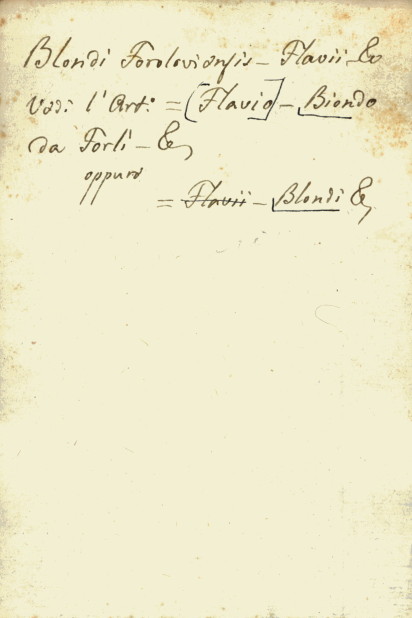 Blondi Foroloviensis - Flavii - &
Ved: l'Art:° = [Flavio] - Biondo
da Forlì - &
oppure
= Flavii - Blondi &